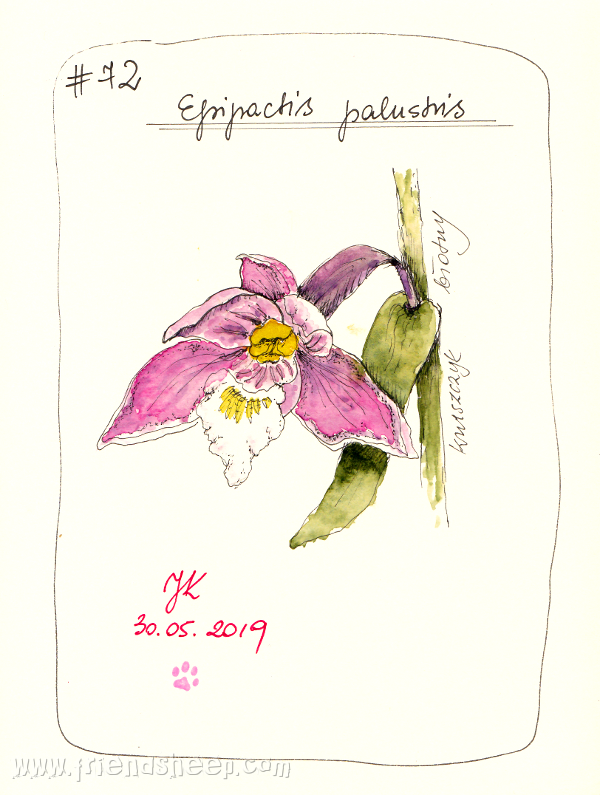 #72
Epipactis palustris
kruszczyk błotny
JK
30.05.2019
www.friendsheep.com